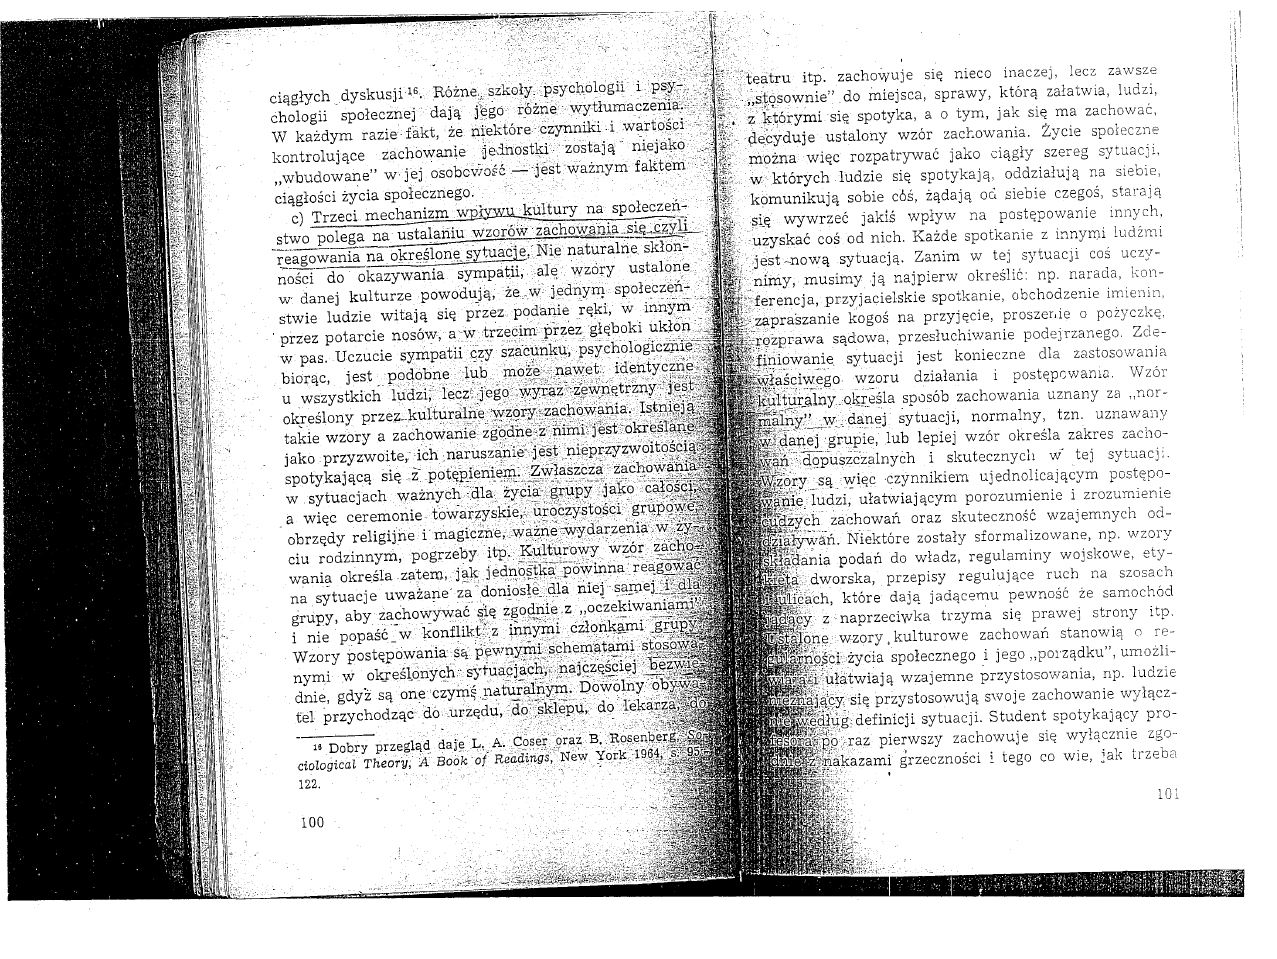 ciągłych dyskusji ¹⁶. Różne szkoły psychologii i psy-
chologii społecznej dają jego różne wytłumaczenia.
W każdym razie fakt, że niektóre czynniki i wartości
kontrolujące zachowanie jednostki zostają niejako
„wbudowane” w jej osobowość — jest ważnym faktem
ciągłości życia społecznego.
c) Trzeci mechanizm wpływu kultury na społeczeń-
stwo polega na ustalaniu wzorów zachowania się czyli
reagowania na określone sytuacje. Nie naturalne skłon-
ności do okazywania sympatii, ale wzory ustalone
w danej kulturze powodują, że w jednym społeczeń-
stwie ludzie witają się przez podanie ręki, w innym
przez potarcie nosów, a w trzecim przez głęboki ukłon
w pas. Uczucie sympatii czy szacunku, psychologicznie
biorąc, jest podobne lub może nawet identyczne
u wszystkich ludzi, lecz jego wyraz zewnętrzny jest
określony przez kulturalne wzory zachowania. Istnieją
takie wzory a zachowanie zgodne z nimi jest określane
jako przyzwoite, ich naruszanie jest nieprzyzwoitością
spotykającą się z potępieniem. Zwłaszcza zachowania
w sytuacjach ważnych dla życia grupy jako całości,
a więc ceremonie towarzyskie, uroczystości grupowe,
obrzędy religijne i magiczne, ważne wydarzenia w ży-
ciu rodzinnym, pogrzeby itp. Kulturowy wzór zacho-
wania określa zatem, jak jednostka powinna reagować
na sytuacje uważane za doniosłe dla niej samej i dla
grupy, aby zachowywać się zgodnie z „oczekiwaniami”
i nie popaść w konflikt z innymi członkami grupy.
Wzory postępowania są pewnymi schematami stosowa-
nymi w określonych sytuacjach, najczęściej bezwie-
dnie, gdyż są one czymś naturalnym. Dowolny obywa-
tel przychodząc do urzędu, do sklepu, do lekarza, do
¹⁶ Dobry przegląd daje L. A. Coser oraz B. Rosenberg, So-
ciological Theory, A Book of Readings, New York 1964, s. 95
122.
100
teatru itp. zachowuje się nieco inaczej, lecz zawsze
„stosownie” do miejsca, sprawy, którą załatwia, ludzi,
z którymi się spotyka, a o tym, jak się ma zachować,
decyduje ustalony wzór zachowania. Życie społeczne
można więc rozpatrywać jako ciągły szereg sytuacji,
w których ludzie się spotykają, oddziałują na siebie,
komunikują sobie coś, żądają od siebie czegoś, starają
się wywrzeć jakiś wpływ na postępowanie innych,
uzyskać coś od nich. Każde spotkanie z innymi ludźmi
jest nową sytuacją. Zanim w tej sytuacji coś uczy-
nimy, musimy ją najpierw określić: np. narada, kon-
ferencja, przyjacielskie spotkanie, obchodzenie imienin,
zapraszanie kogoś na przyjęcie, proszenie o pożyczkę,
rozprawa sądowa, przesłuchiwanie podejrzanego. Zde-
finiowanie sytuacji jest konieczne dla zastosowania
właściwego wzoru działania i postępowania. Wzór
kulturalny określa sposób zachowania uznany za „nor-
malny” w danej sytuacji, normalny, tzn. uznawany
w danej grupie, lub lepiej wzór określa zakres zacho-
wań dopuszczalnych i skutecznych w tej sytuacji.
Wzory są więc czynnikiem ujednolicającym postępo-
wanie ludzi, ułatwiającym porozumienie i zrozumienie
cudzych zachowań oraz skuteczność wzajemnych od-
działywań. Niektóre zostały sformalizowane, np. wzory
składania podań do władz, regulaminy wojskowe, ety-
kieta dworska, przepisy regulujące ruch na szosach
i ulicach, które dają jadącemu pewność że samochód
jadący z naprzeciwka trzyma się prawej strony itp.
Ustalone wzory kulturowe zachowań stanowią o re-
gularności życia społecznego i jego „porządku”, umożli-
wiają i ułatwiają wzajemne przystosowania, np. ludzie
nieznający się przystosowują swoje zachowanie wyłącz-
nie według definicji sytuacji. Student spotykający pro-
fesora po raz pierwszy zachowuje się wyłącznie zgo-
dnie z nakazami grzeczności i tego co wie, jak trzeba
101